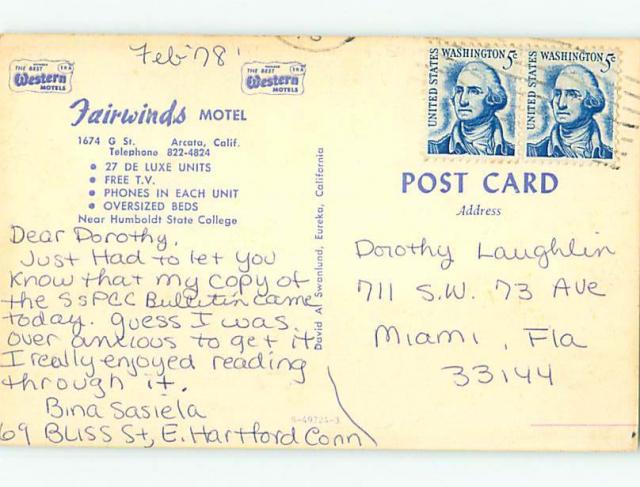 Feb '78
THE BEST
Western
MOTELS
THE BEST
Western
MOTELS
Fairwinds MOTEL
1674 G St. Arcata, Calif.
Telephone 822-4824
• 27 DE LUXE UNITS
• FREE T.V.
• PHONES IN EACH UNIT
• OVERSIZED BEDS
Near Humboldt State College
Dear Dorothy,
Just Had to let you
Know that my copy of
the SSPCC Bulletin came
today. guess I was
over anxious to get it
I really enjoyed reading
through it.
Bina Sasiela
69 BLISS St, E. Hartford Conn
David A. Swanlund, Eureka, California
UNITED STATES
WASHINGTON 5c
UNITED STATES
WASHINGTON 5c
POST CARD
Address
Dorothy Laughlin
711 S.W. 73 Ave
Miami, Fla
33144